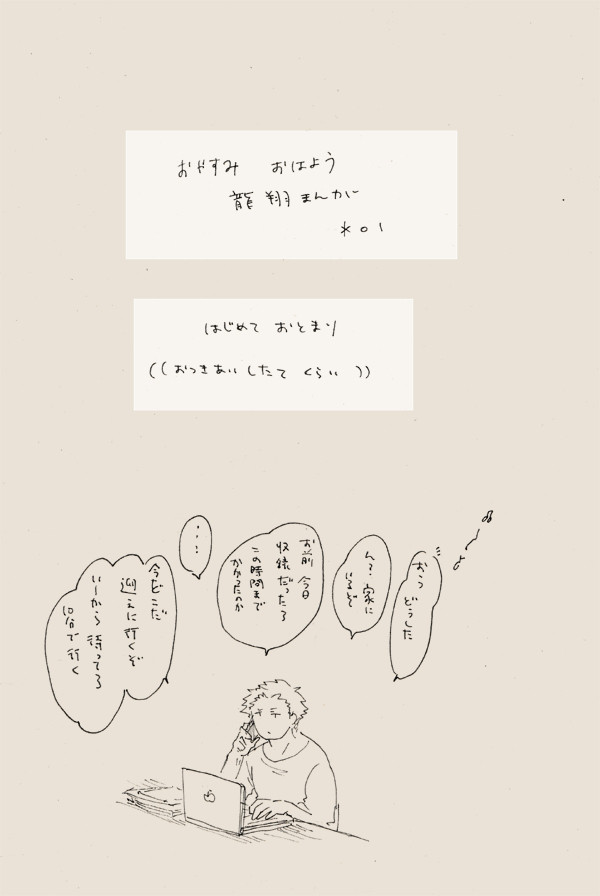 おやすみ おはよう
龍翔まんが
*01
はじめて おとまり
((おつきあいしたて くらい))
おう
どうした
ん?家に
いるぞ
お前 今日
収録だったろ
この時間まで
かかったのか
…
今どこだ
迎えに行くぞ
いーから 待ってろ
10分で行く